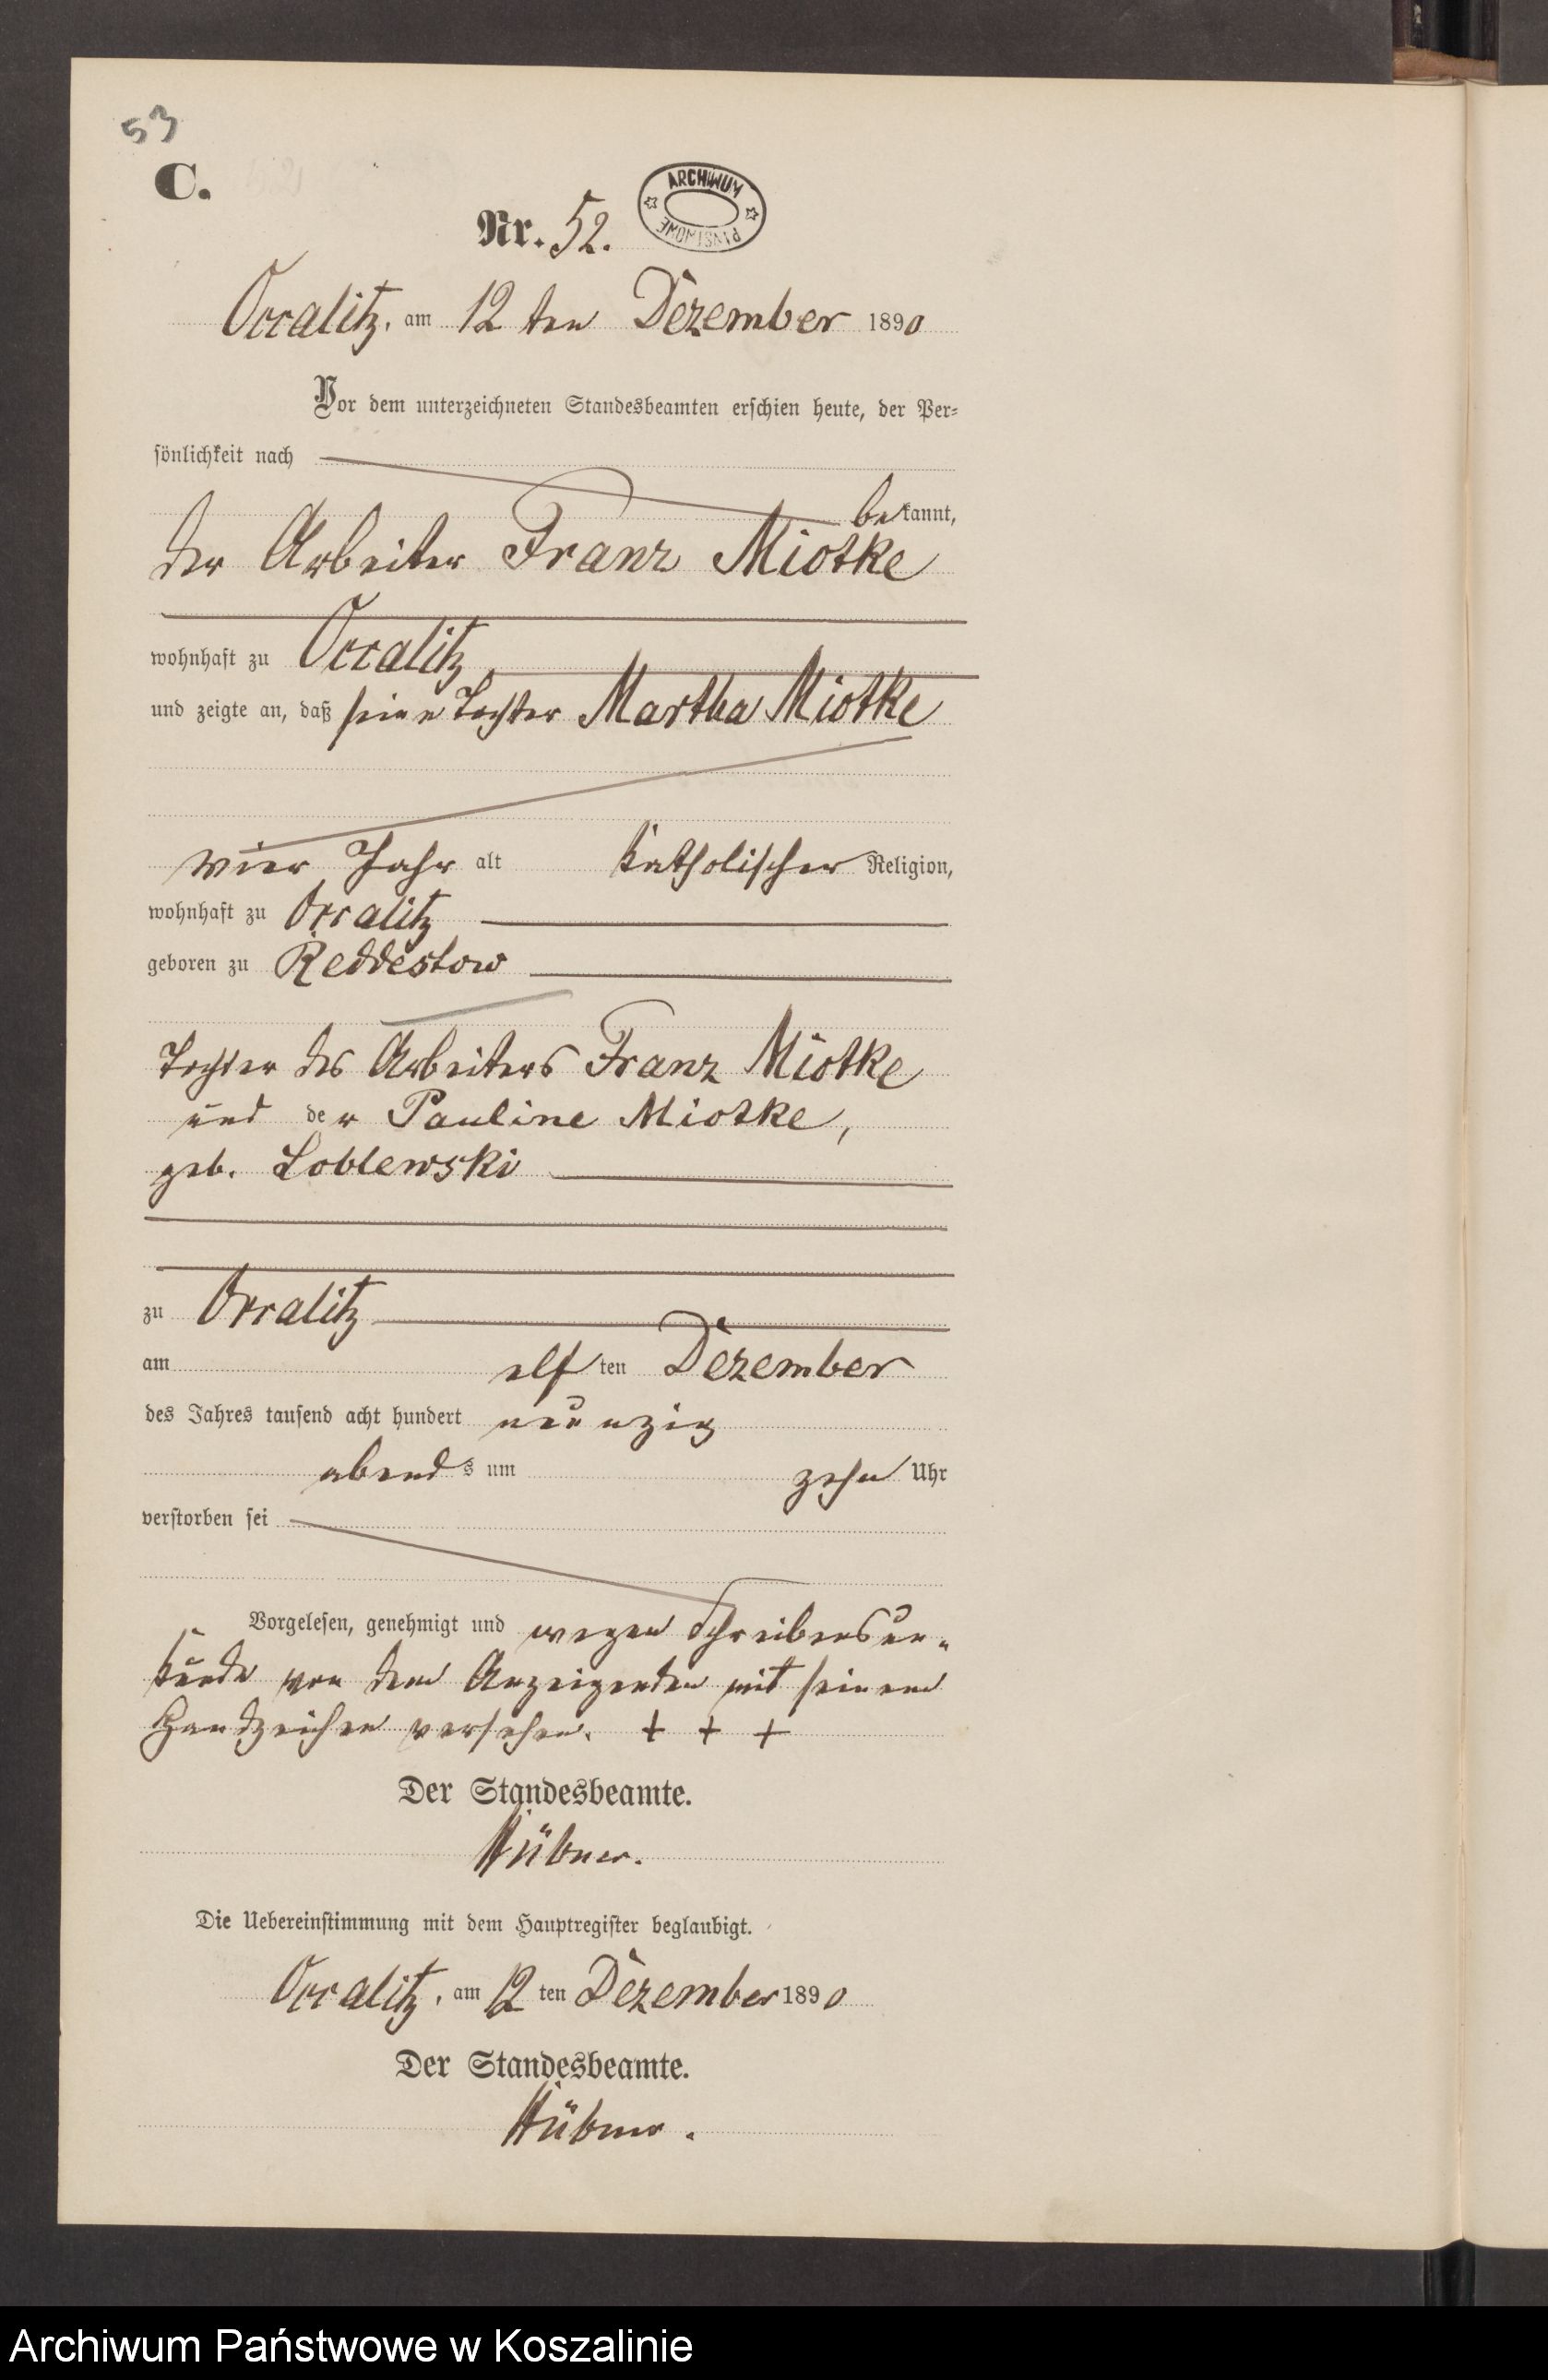 53
C.
Nr. 52.
ARCHIWUM
PAŃSTWOWE
Occalitz, am 12 ten Dezember 1890
Vor dem unterzeichneten Standesbeamten erschien heute, der Per-
sönlichkeit nach
bekannt,
der Arbeiter Franz Miotke
wohnhaft zu Occalitz
und zeigte an, daß seine Tochter Martha Miotke
vier Jahr alt katholischer Religion,
wohnhaft zu Occalitz
geboren zu Reddestow
Tochter des Arbeiters Franz Miotke
und der Pauline Miotke,
geb. Loblewski
zu Occalitz
am elf ten Dezember
des Jahres tausend acht hundert neunzig
abends um zehn Uhr
verstorben sei
Vorgelesen, genehmigt und wegen Schreibensun-
kunde von dem Anzeigenden mit seinem
Handzeichen versehen. + + +
Der Standesbeamte.
Hübner.
Die Uebereinstimmung mit dem Hauptregister beglaubigt.
Occalitz, am 12 ten Dezember 1890
Der Standesbeamte.
Hübner.
Archiwum Państwowe w Koszalinie